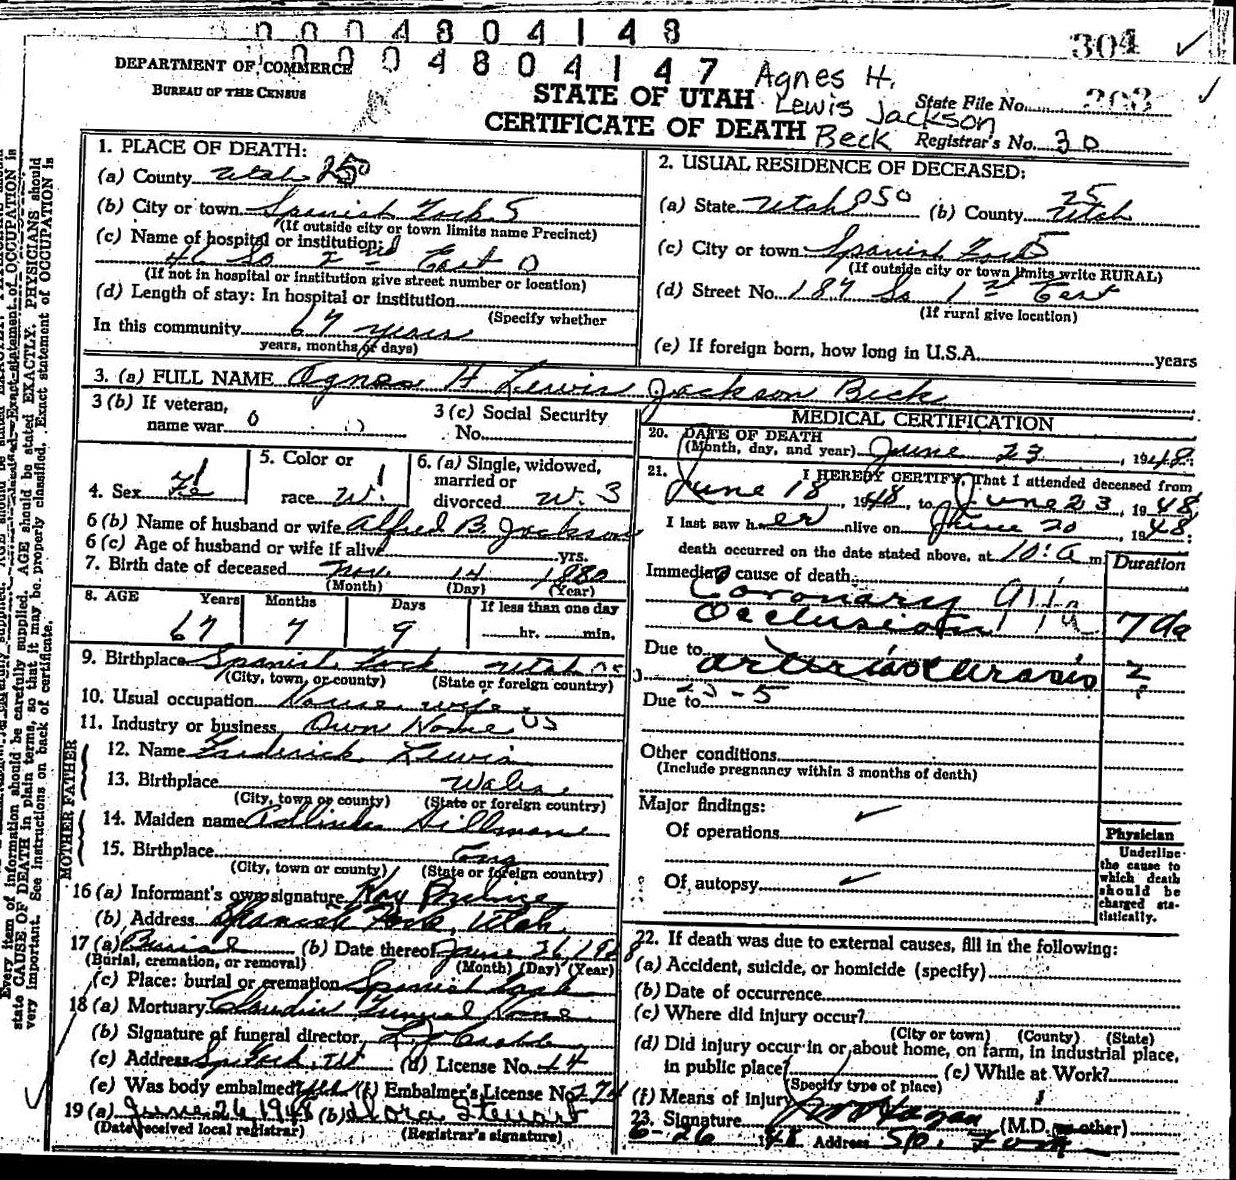 0004804148
304
0004804147
DEPARTMENT OF COMMERCE
BUREAU OF THE CENSUS
Agnes H.
Lewis Jackson
Beck
STATE OF UTAH
CERTIFICATE OF DEATH
State File No. 303
Registrar's No. 30
1. PLACE OF DEATH:
(a) County Utah 250
(b) City or town Spanish Fork 5
(If outside city or town limits name Precinct)
(c) Name of hospital or institution:
46 So 2nd East 0
(If not in hospital or institution give street number or location)
(d) Length of stay: In hospital or institution
(Specify whether
In this community 67 years
years, months or days)
2. USUAL RESIDENCE OF DECEASED:
(a) State Utah 850 (b) County 25 Utah
(c) City or town Spanish Fork 5
(If outside city or town limits write RURAL)
(d) Street No. 187 So 1st East
(If rural give location)
(e) If foreign born, how long in U.S.A. years
3. (a) FULL NAME Agnes H Lewis Jackson Beck
3 (b) If veteran,
name war 0 0
3 (c) Social Security
No.
4. Sex Fe
5. Color or
race W. 1
6. (a) Single, widowed,
married or
divorced W. 3
6 (b) Name of husband or wife Alfred B. Jackson
6 (c) Age of husband or wife if alive yrs.
7. Birth date of deceased Nov. 14 1880
(Month) (Day) (Year)
8. AGE Years Months Days If less than one day
67 7 9 hr. min.
9. Birthplace Spanish Fork Utah
(City, town, or county) (State or foreign country)
10. Usual occupation House wife
11. Industry or business Own Home US
FATHER
12. Name Frederick Lewis
13. Birthplace Wales
(City, town or county) (State or foreign country)
MOTHER
14. Maiden name Hillman
15. Birthplace Eng
(City, town or county) (State or foreign country)
16 (a) Informant's own signature Roy
(b) Address Spanish Fork, Utah.
17 (a) Burial (b) Date thereof June 26, 1948
(Burial, cremation, or removal) (Month) (Day) (Year)
(c) Place: burial or cremation Spanish Fork
18 (a) Mortuary Claudin Funeral Home
(b) Signature of funeral director
(c) Address Sp. Fork, Ut (d) License No. 14
(e) Was body embalmed? Yes (f) Embalmer's License No. 274
19 (a) June 26 1948 (b) Flora Stewart
(Date received local registrar) (Registrar's signature)
MEDICAL CERTIFICATION
20. DATE OF DEATH
(Month, day, and year) June 23, 1948.
21. I HEREBY CERTIFY, That I attended deceased from
June 18, 1948, to June 23, 1948,
I last saw her alive on June 20, 1948;
death occurred on the date stated above, at 10:a m. Duration
Immediate cause of death:
Coronary
Occlusion 7 da
Due to arteriosclerosis 2 ?
Due to
Other conditions
(Include pregnancy within 3 months of death)
Major findings:
Of operations
Of autopsy
Physician
Underline
the cause to
which death
should be
charged sta-
tistically.
22. If death was due to external causes, fill in the following:
(a) Accident, suicide, or homicide (specify)
(b) Date of occurrence
(c) Where did injury occur?
(City or town) (County) (State)
(d) Did injury occur in or about home, on farm, in industrial place,
in public place? (e) While at Work?
(Specify type of place)
(f) Means of injury
23. Signature Hagan (M.D. or other)
6-26 1948 Address Sp. Fork
Every item of information should be carefully supplied. AGE should be stated EXACTLY. PHYSICIANS should
state CAUSE OF DEATH in plain terms, so that it may be properly classified. Exact statement of OCCUPATION is
very important. See instructions on back of certificate.